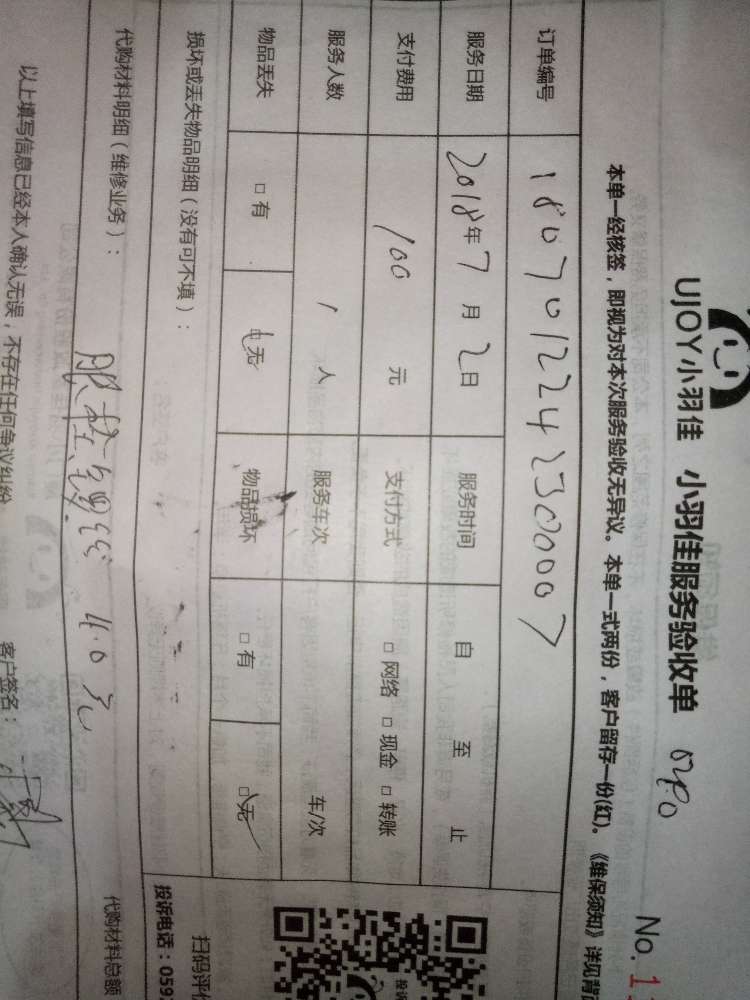 UJOY小羽佳 小羽佳服务验收单
No. 1
本单一经核签，即视为对本次服务验收无异议。本单一式两份，客户留存一份(红)。《维保须知》详见背
订单编号 180701224230007
服务日期 2018年7月2日 服务时间 自 至 止
支付费用 100元 支付方式 □网络 □现金 □转账
服务人数 1人 服务车次 车/次
物品丢失 □有 □无 物品损坏 □有 □无
损坏或丢失物品明细（没有可不填）：
扫码评价
投诉电话：059
代购材料明细（维修业务）：
40元
代购材料总额
以上填写信息已经本人确认无误，不存在任何争议纠纷
客户签名：